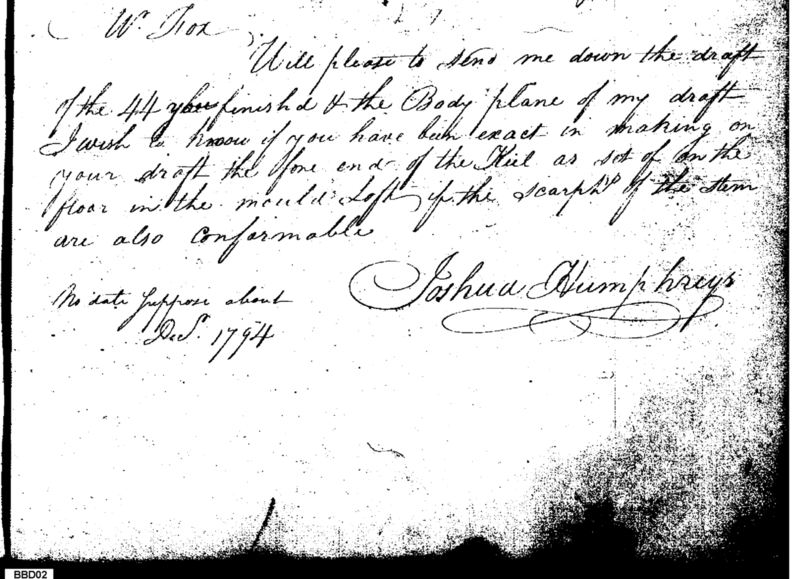 Wm. Fox
Will please to send me down the draft
of the 44 you finishd & the Body plane of my draft
I wish to know if you have been exact in making on
your draft the fore end of the Kiel as sot of on the
floor in the mould Loft, if the scarphs of the stem
are also conformable
Joshua Humphreys
No date suppose about
Decr. 1794
BBD02